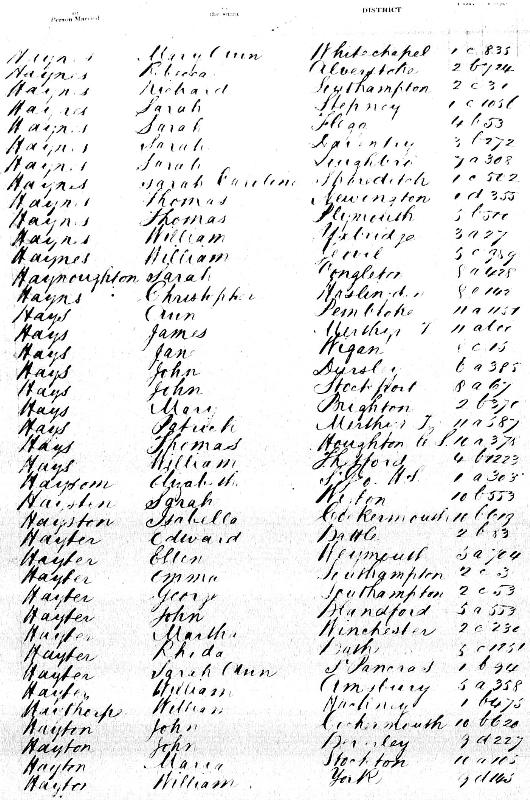 Person Married
DISTRICT
Haynes Mary Ann Whitechapel 1c 835
Haynes Rebecca Alverstoke 2b 724
Haynes Richard Southampton 2c 31
Haynes Sarah Stepney 1c
Haynes Sarah Flegg 4b 53
Haynes Sarah Daventry 3b 272
Haynes Sarah Loughbro 7a 308
Haynes Sarah Caroline Shoreditch 1c
Haynes Thomas Newington 1d 355
Haynes Thomas Plymouth 5b
Haynes William Uxbridge 3a 27
Haynes William Yeovil 5c
Haynoughton Sarah Congleton 8a 428
Hayns Christopher Haslinden 8e 142
Hays Ann Pembroke 11a 1151
Hays James Merthyr T 11a
Hays Jane Wigan 8c 15
Hays John Dursley 6a 385
Hays John Stockport 8a 67
Hays Mary Brighton 2b 270
Hays Patrick Merthyr Ty 11a 587
Hays Thomas Houghton le S 10a 375
Hays William Thetford 4b 1223
Haysom Elizabeth 1a 305
Sarah 10b 553
Hayston Isabella Cockermouth 10b
Hayter Edward Battle 2b 53
Hayter Ellen Weymouth 5a 724
Hayter Emma Southampton 2c 3
Hayter George Southampton 2c 53
Hayter John Blandford 5a 553
Hayter Martha Winchester 2c 230
Hayter Rhoda Bath 5c 1251
Hayter Sarah Ann St Pancras 1b 94
Hayter William Amsbury 5a 358
Haythorp William Hackney 1b 475
Hayton John Cockermouth 10b 620
Hayton John Beverley 9d 227
Hayton Maria Stockton 10a 105
Hayton William York 9d 165